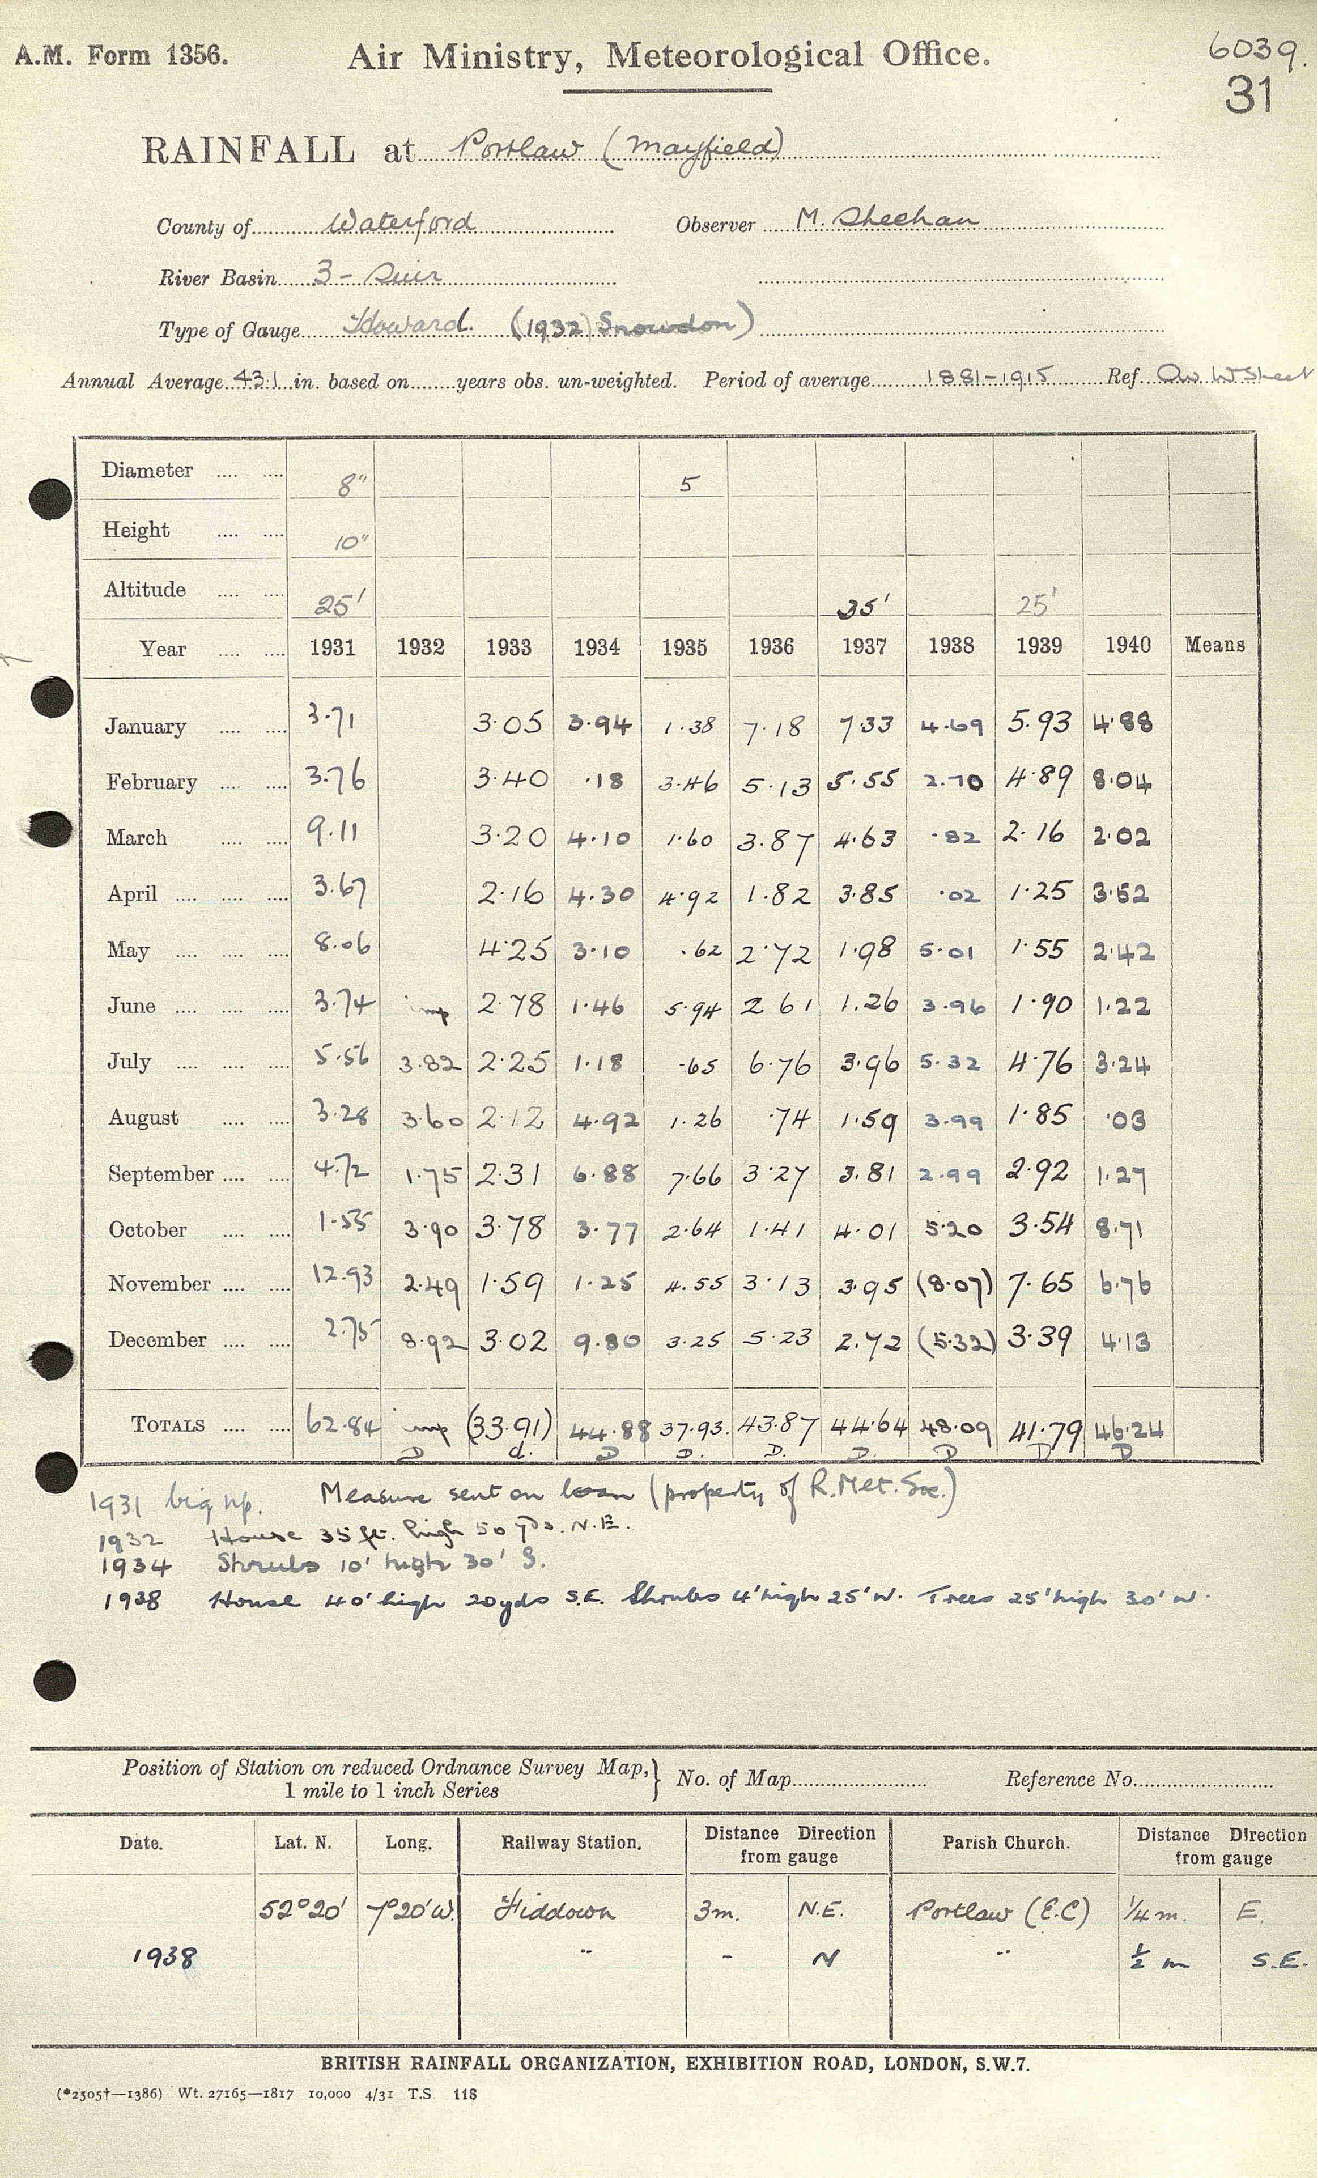 A.M. Form 1356. Air Ministry, Meteorological Office. 6039.
31
RAINFALL at Portlaw (Mayfield)
County of Waterford Observer M. Sheehan
River Basin 3 - Suir
Type of Gauge Howard. (1932 Snowdon)
Annual Average 43.1 in. based on ...... years obs. un-weighted. Period of average 1881-1915 Ref.
Diameter 8" 5
Height 10"
Altitude 25' 35' 25'
Year 1931 1932 1933 1934 1935 1936 1937 1938 1939 1940 Means
January 3.71 3.05 3.94 1.38 7.18 7.33 4.69 5.93 4.88
February 3.76 3.40 .18 3.46 5.13 5.55 2.70 4.89 8.04
March 9.11 3.20 4.10 1.60 3.87 4.63 .82 2.16 2.02
April 3.67 2.16 4.30 4.92 1.82 3.85 .02 1.25 3.52
May 8.06 4.25 3.10 .62 2.72 1.98 5.01 1.55 2.42
June 3.74 imp 2.78 1.46 5.94 2 61 1.26 3.96 1.90 1.22
July 5.56 3.82 2.25 1.18 .65 6.76 3.96 5.32 4.76 3.24
August 3.28 3.60 2.12 4.92 1.26 .74 1.59 3.99 1.85 .03
September 4.72 1.75 2.31 6.88 7.66 3.27 3.81 2.99 2.92 1.27
October 1.55 3.90 3.78 3.77 2.64 1.41 4.01 5.20 3.54 8.71
November 12.93 2.49 1.59 1.25 4.55 3.13 3.95 (8.07) 7.65 6.76
December 2.75 8.92 3.02 9.80 3.25 5.23 2.72 (5.32) 3.39 4.13
TOTALS 62.84 imp (33.91) 44.88 37.93. 43.87 44.64 48.09 41.79 46.24
D d. D D. D. D. D D D
1931 big up. Measure sent on loan (property of R. Met. Soc.)
1932 House 35 ft. high 50 yds. N.E.
1934 Shrubs 10' high 30' S.
1938 House 40' high 20yds S.E. Shrubs 4' high 25' W. Trees 25' high 30' W.
Position of Station on reduced Ordnance Survey Map, 1 mile to 1 inch Series } No. of Map Reference No.
Date. Lat. N. Long. Railway Station. Distance Direction from gauge Parish Church. Distance Direction from gauge
52°20' 7°20'W. Fiddown 3m. N.E. Portlaw (E.C) ¼ m. E.
1938 " - N " ½ m S.E.
BRITISH RAINFALL ORGANIZATION, EXHIBITION ROAD, LONDON, S.W.7.
(*2505†—1386) Wt. 27165—1817 10,000 4/31 T.S. 118